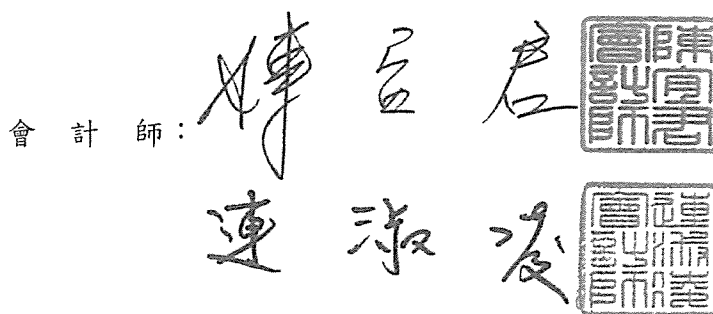 會計師：陳宜君
陳宜君會計師
連淑凌
連淑凌會計師